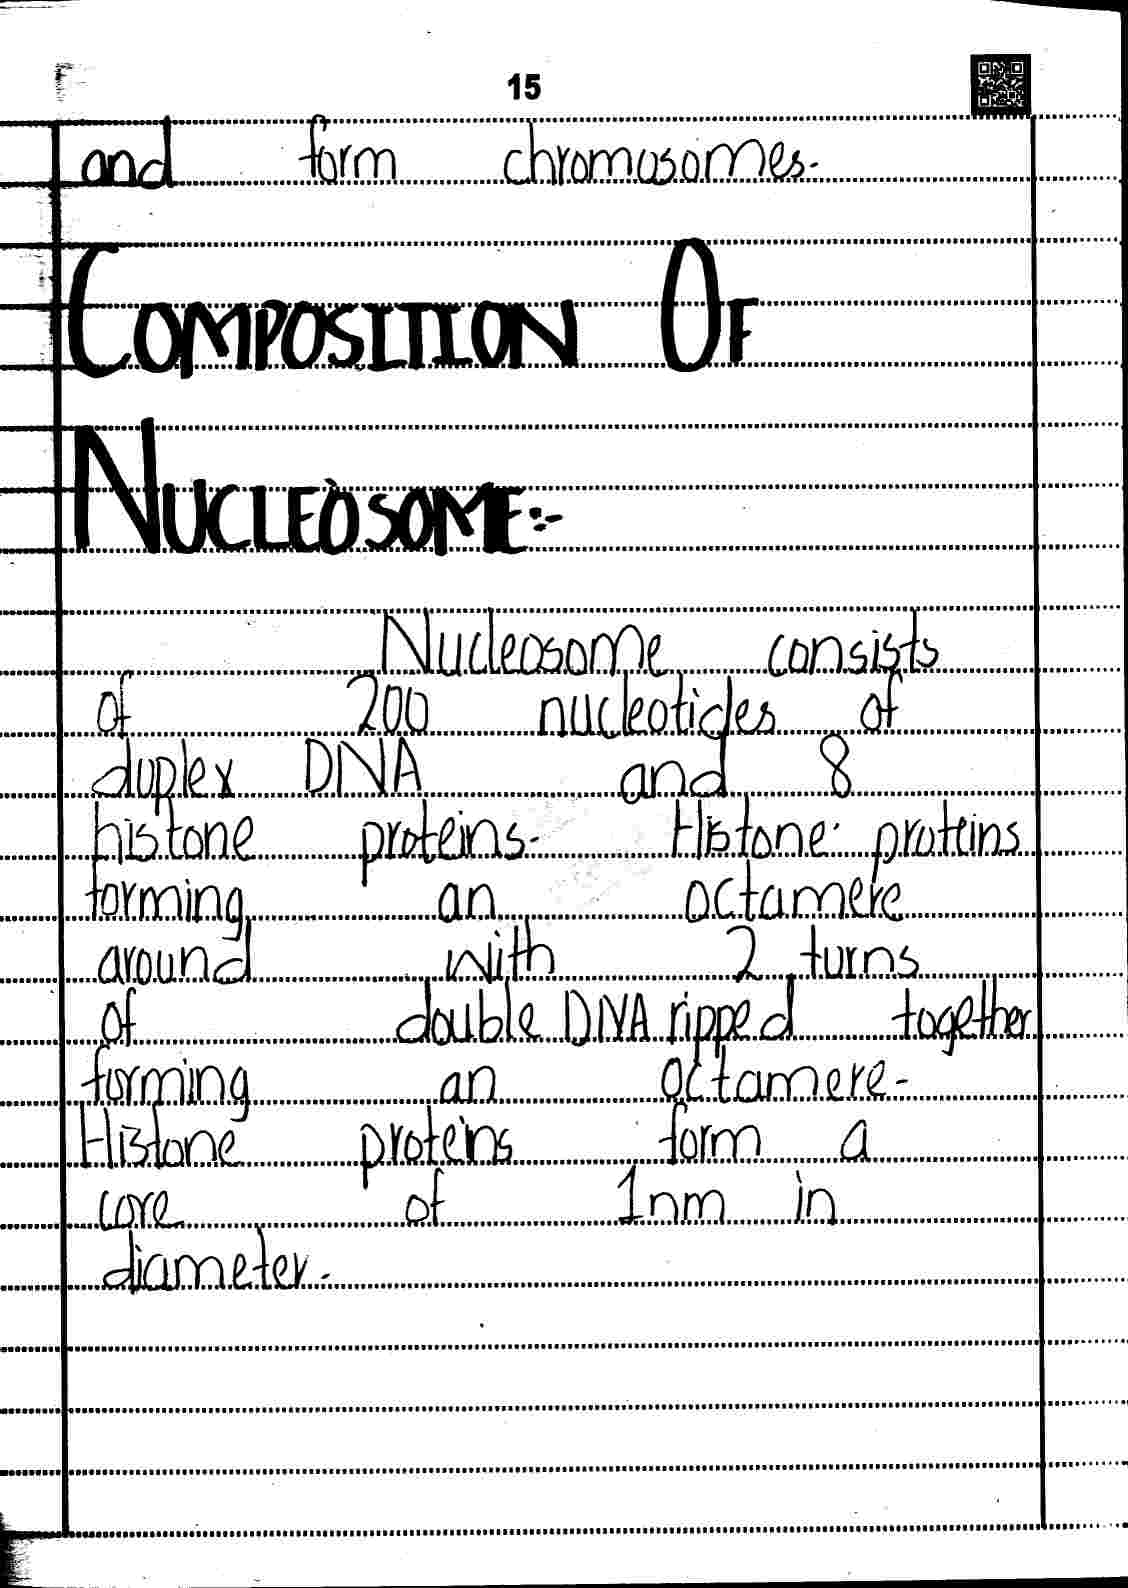 15
and form chromosomes.
COMPOSITION OF
NUCLEOSOME:-
Nucleosome consists
of 200 nucleotides of
duplex DNA and 8
histone proteins. Histone proteins
forming an octamere
around with 2 turns
of double DNA ripped together
forming an octamere.
Histone proteins form a
core of 1nm in
diameter.